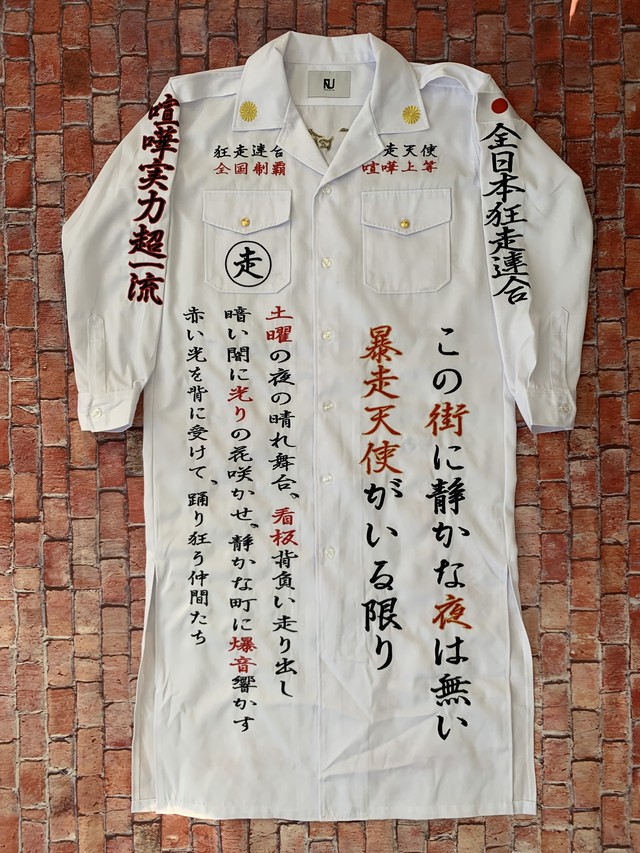 RU
狂走連合
全国制覇
走天使
喧嘩上等
喧嘩実力超一流
全日本狂走連合
走
この街に静かな夜は無い
暴走天使がいる限り
土曜の夜の晴れ舞台、看板背負い走り出し
暗い闇に光りの花咲かせ、静かな町に爆音響かす
赤い光を背に受けて、踊り狂う仲間たち